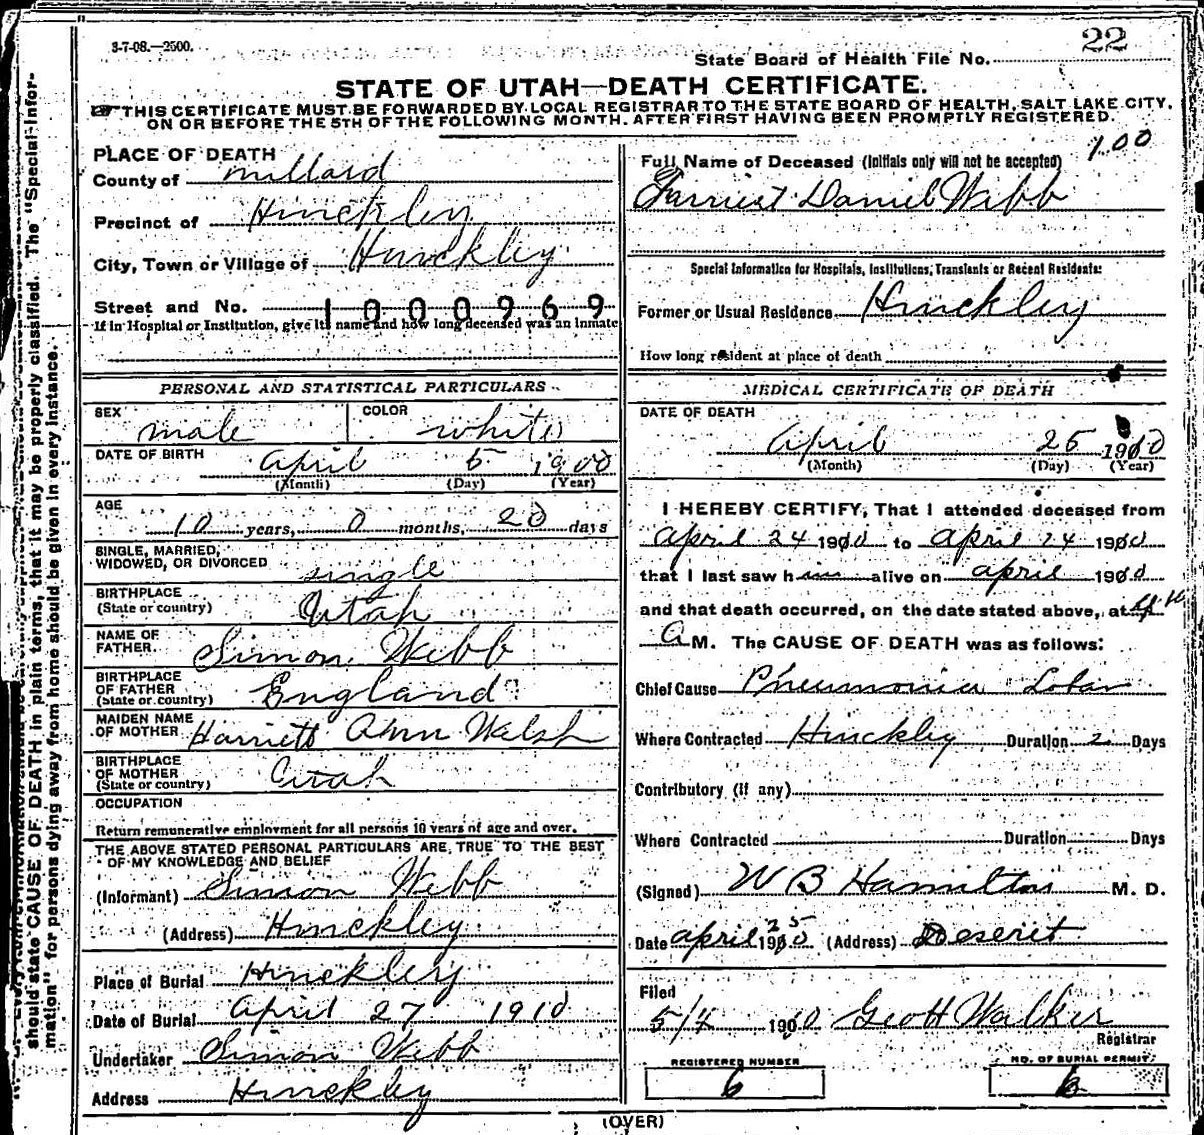 3-7-08.—2500.
22
State Board of Health File No.
STATE OF UTAH—DEATH CERTIFICATE.
THIS CERTIFICATE MUST BE FORWARDED BY LOCAL REGISTRAR TO THE STATE BOARD OF HEALTH, SALT LAKE CITY,
ON OR BEFORE THE 5TH OF THE FOLLOWING MONTH. AFTER FIRST HAVING BEEN PROMPTLY REGISTERED.
should state CAUSE OF DEATH in plain terms, that it may be properly classified. The "Special Infor-
mation" for persons dying away from home should be given in every instance.
PLACE OF DEATH
County of Millard
Precinct of Hinckley
City, Town or Village of Hinckley
Street and No. 1000969
If in Hospital or Institution, give its name and how long deceased was an inmate
PERSONAL AND STATISTICAL PARTICULARS
SEX male COLOR white
DATE OF BIRTH April 5 1900
(Month) (Day) (Year)
AGE 10 years, 0 months, 20 days
SINGLE, MARRIED,
WIDOWED, OR DIVORCED single
BIRTHPLACE
(State or country) Utah
NAME OF
FATHER Simon Webb
BIRTHPLACE
OF FATHER
(State or country) England
MAIDEN NAME
OF MOTHER Harriett Ann Welsh
BIRTHPLACE
OF MOTHER
(State or country) Utah
OCCUPATION
Return remunerative employment for all persons 10 years of age and over.
THE ABOVE STATED PERSONAL PARTICULARS ARE TRUE TO THE BEST
OF MY KNOWLEDGE AND BELIEF
(Informant) Simon Webb
(Address) Hinckley
Place of Burial Hinckley
Date of Burial April 27 1910
Undertaker Simon Webb
Address Hinckley
Full Name of Deceased (Initials only will not be accepted) 1.00
Daniel Webb
Special Information for Hospitals, Institutions, Transients or Recent Residents:
Former or Usual Residence Hinckley
How long resident at place of death
MEDICAL CERTIFICATE OF DEATH
DATE OF DEATH
April 25 1910
(Month) (Day) (Year)
I HEREBY CERTIFY, That I attended deceased from
April 24 1910 to April 24 1910
that I last saw him alive on April 1910
and that death occurred, on the date stated above, at
A M. The CAUSE OF DEATH was as follows:
Chief Cause Pneumonia Lobar
Where Contracted Hinckley Duration 2 Days
Contributory (if any)
Where Contracted Duration Days
(Signed) W B Hamilton M. D.
Date April 25 1910 (Address) Deseret
Filed
5/4 1910 Geo H Walker
Registrar
REGISTERED NUMBER
6
NO. OF BURIAL PERMIT
6
(OVER)